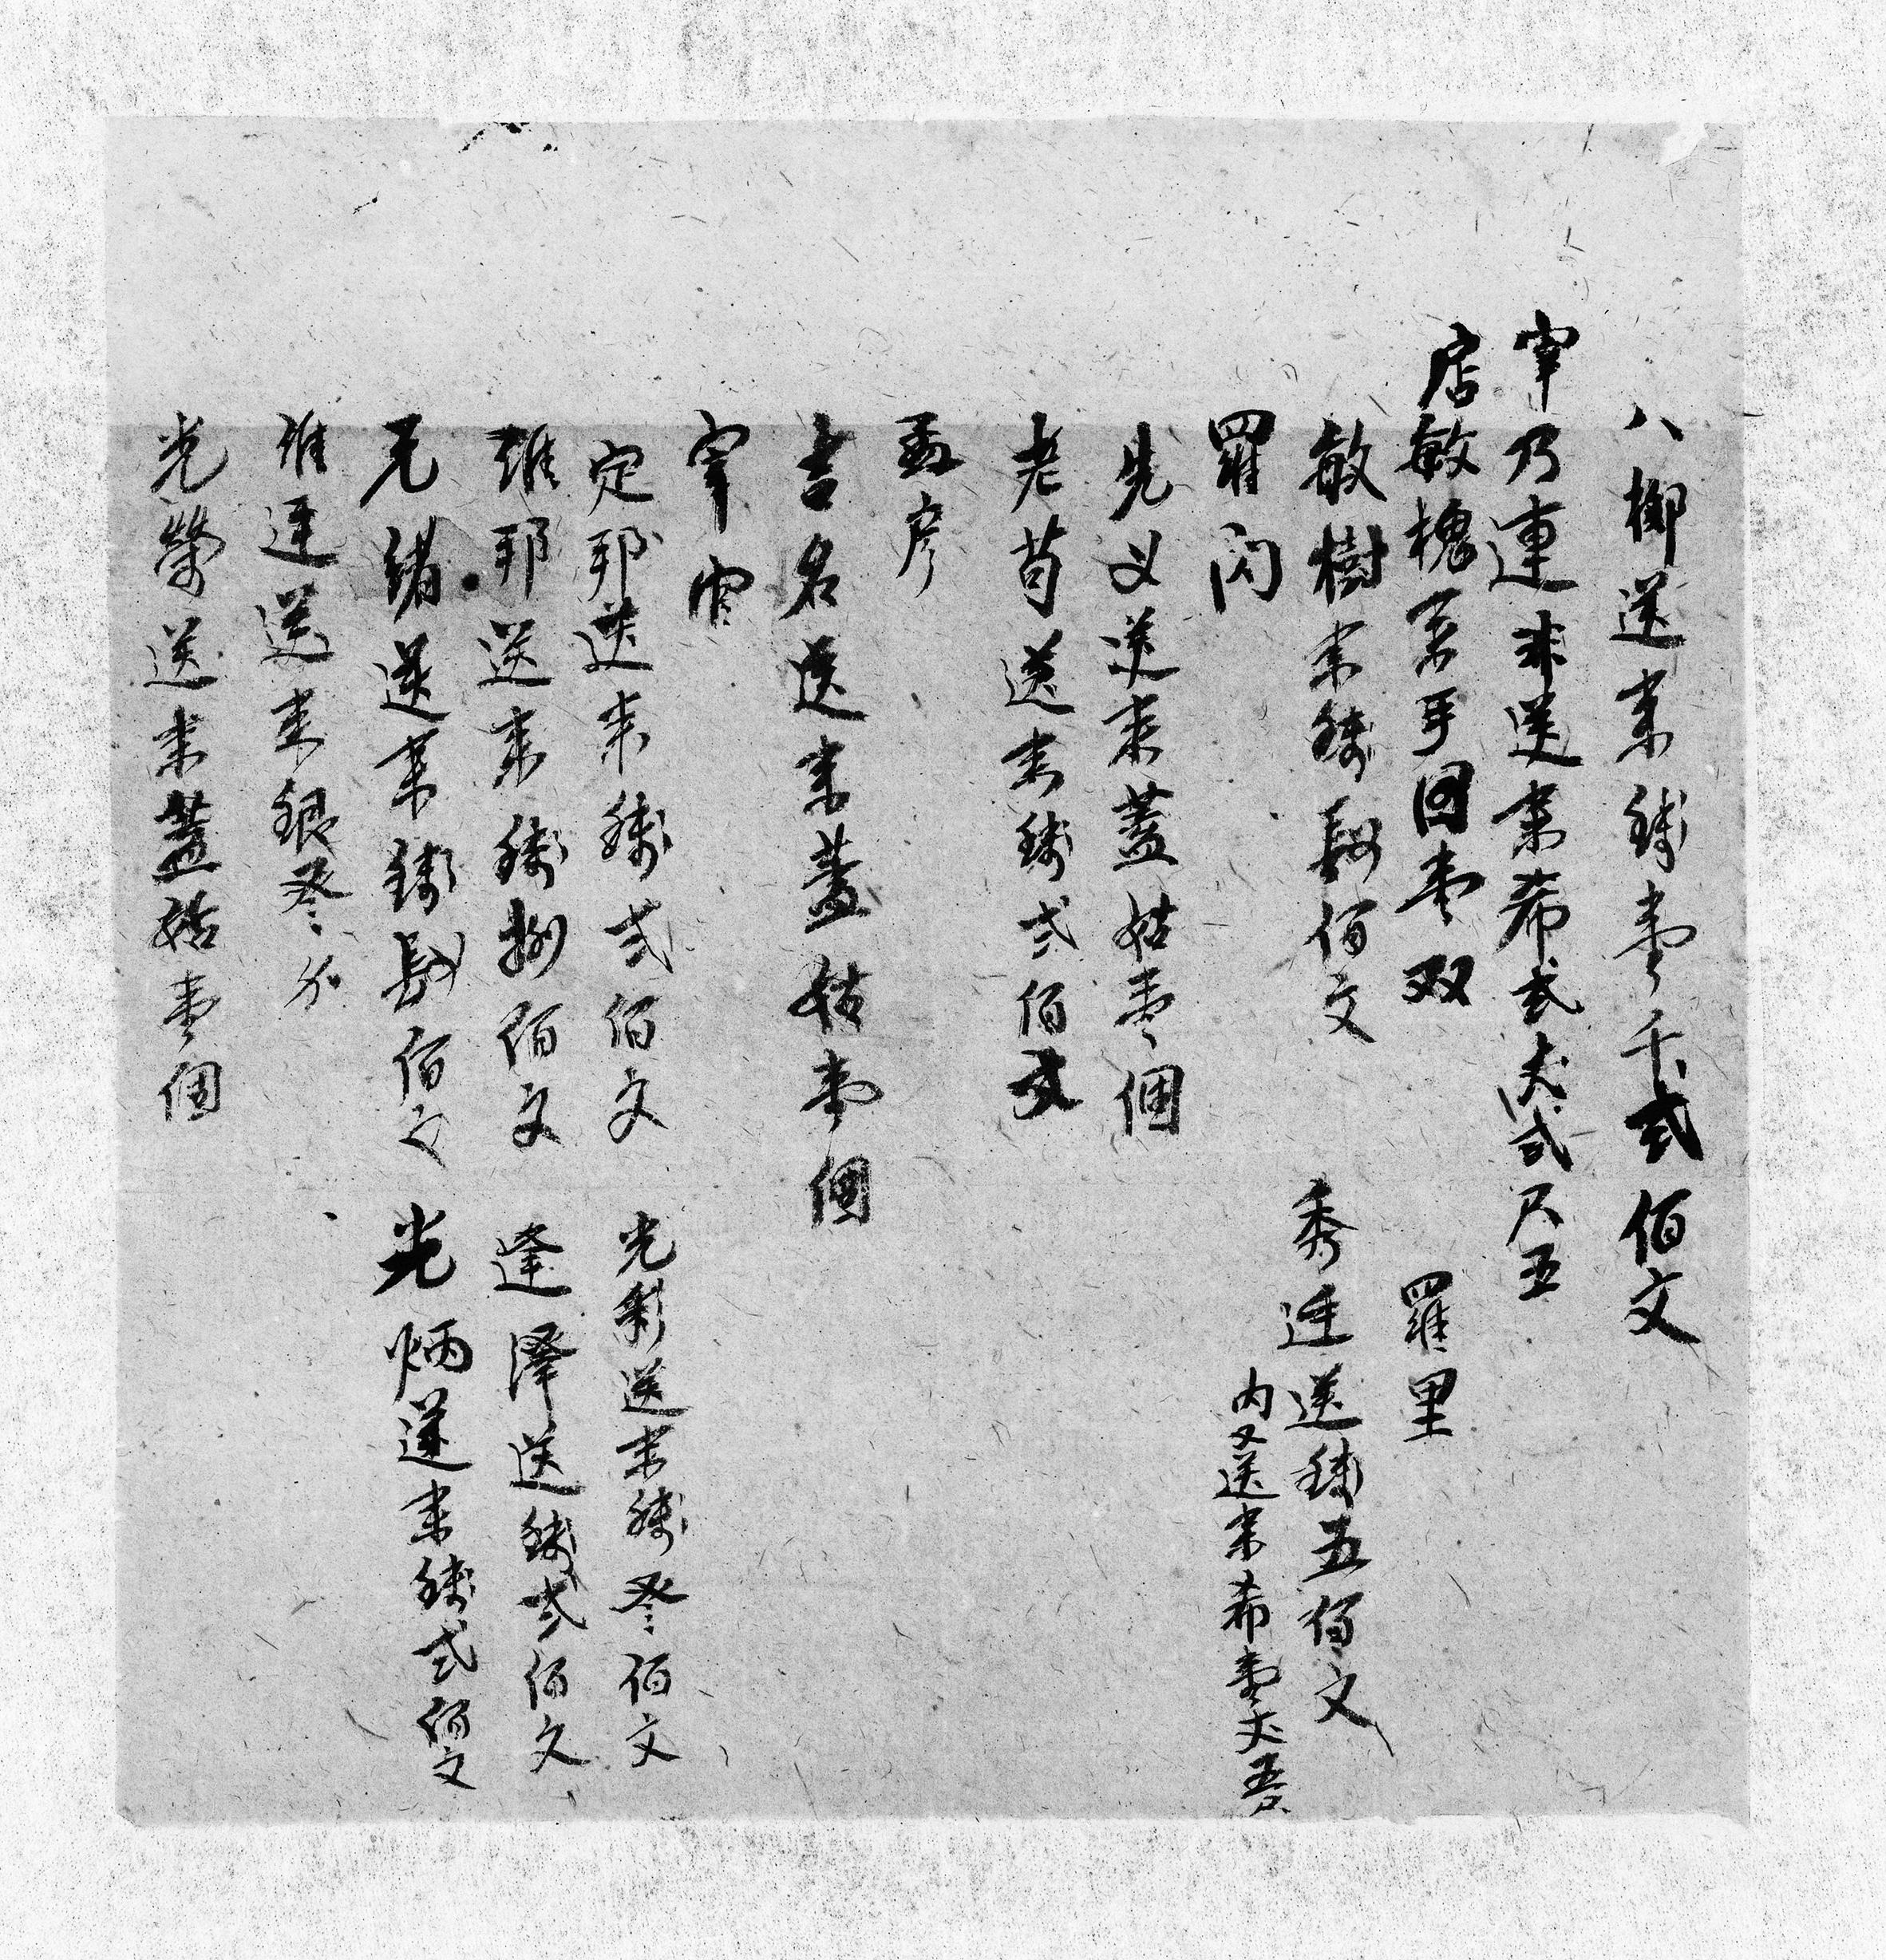 八梆送来錢壹千弍佰文
宰乃連非送来布弍丈弍尺五
启敏槐 手囬壹双
羅里
敏樹来錢 佰文
秀廷送錢五佰文
内又送来布壹丈五尺
羅闪
先义送来蓋姑壹個
老苟送来錢弍佰文
孟彦
吉名送来蓋姑壹個
宰官
定耶送来錢弍佰文
光彩送来錢叁佰文
維耶送来錢捌佰文
逢澤送錢弍佰文
元緒送来錢 佰文
光炳送来錢弍佰文
維廷送来銀叁分
光榮送来蓋姑壹個